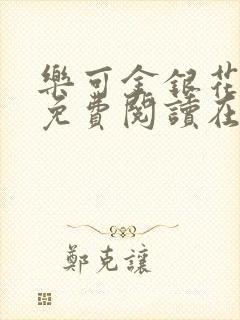 樂可金銀花
免費閱讀在
鄭克讓